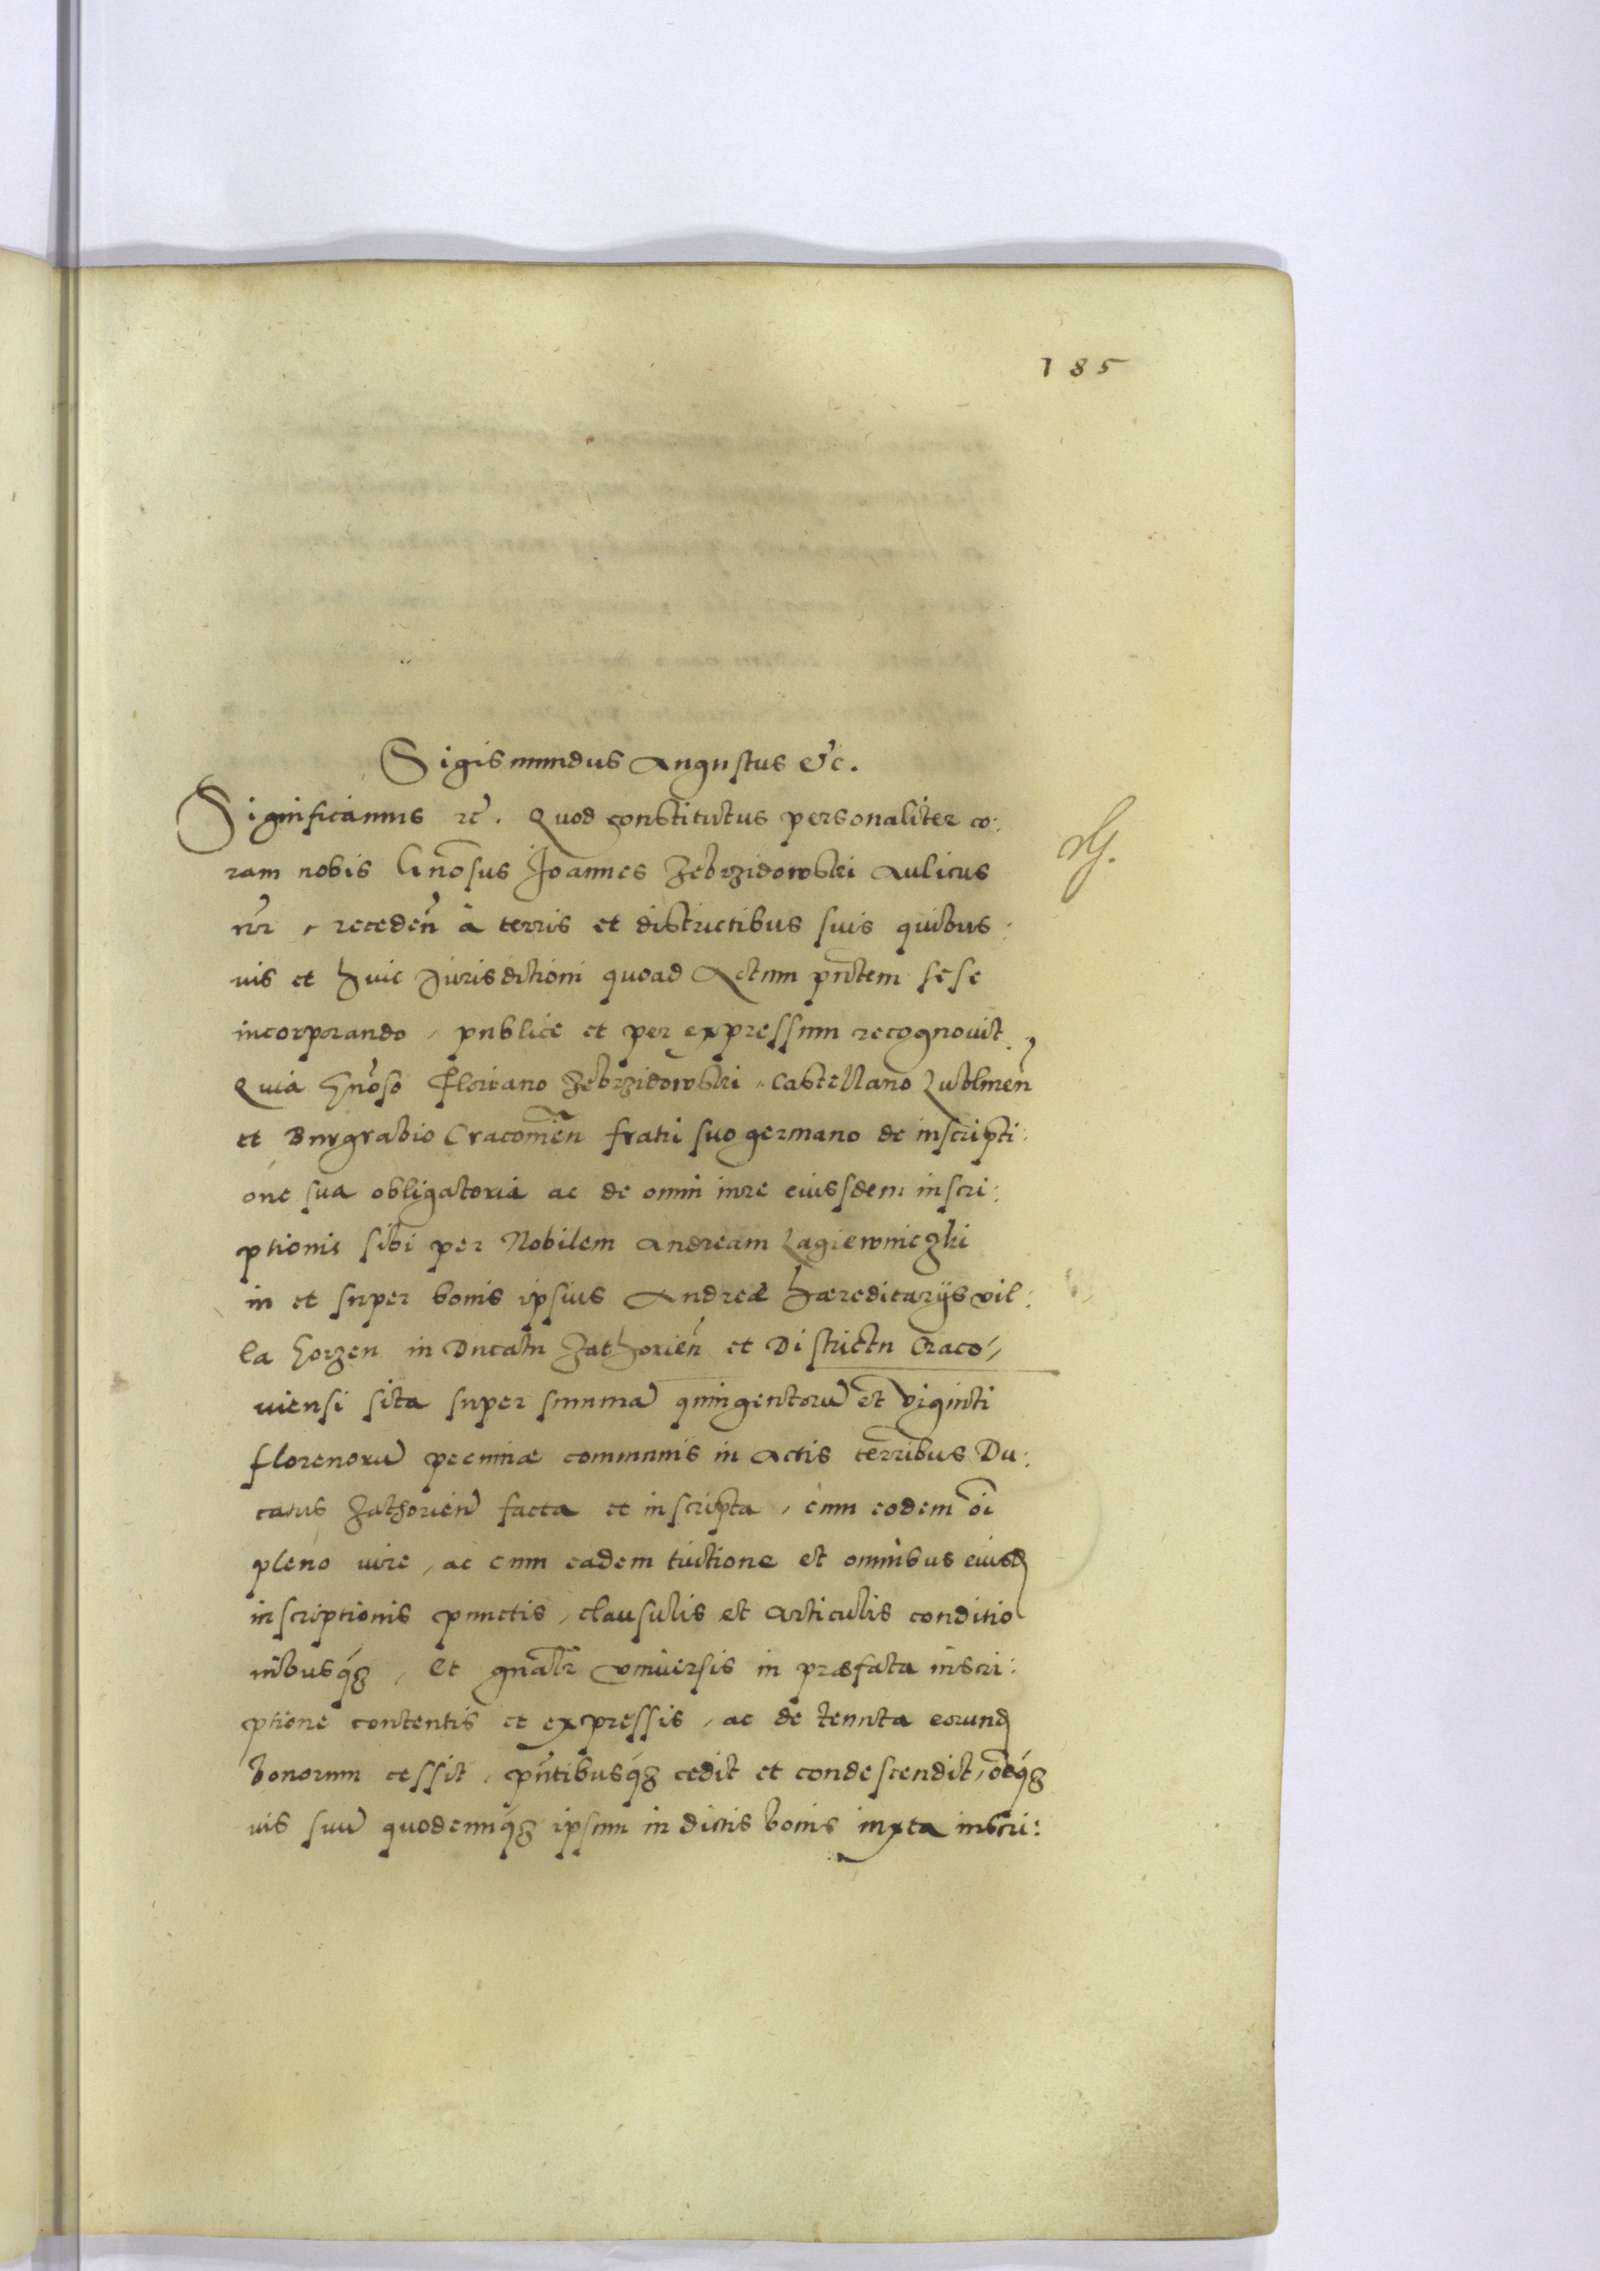 185
Sigismundus Augustus &c.
Significamus &c. Quod constitutus personaliter co:
ram nobis Gnosus Joannes Zebrzidowski Aulicus
nr, receden a terris et districtibus suis quibus:
vis et huic Jurisditioni quoad Actum pntem sese
incorporando, publice et per expressum recognovit,
Quia Gnoso Floriano Zebrzidowski, Castellano Lublinen
et Burgrabio Cracovien fratri suo germano de inscripti:
one sua obligatoria ac de omni iure eiusdem inscri:
ptionis sibi per Nobilem Andream Lagiewniczki
in et super bonis ipsius Andreæ hæreditarijs vil:
la Gorzen in Ducatu Zathorien et Districtu Craco,
uiensi sita super summa quingentoru et viginti
florenoru pecuniæ communis in Actis terribus Du:
catus Zathorien facta et inscripta, cum eodem oi
pleno iure, ac cum eadem tuitione et omnibus eiusd
inscriptionis punctis, clausulis et articulis conditio
nibusq3, et gnalr vniuersis in præfata inscri:
ptione contentis et expressis, ac de tenuta eorund
bonorum cessit, pntibusq3 cedit et condescendit, oeq3
ius suu quodcunq3 ipsum in dictis bonis iuxta inscri: